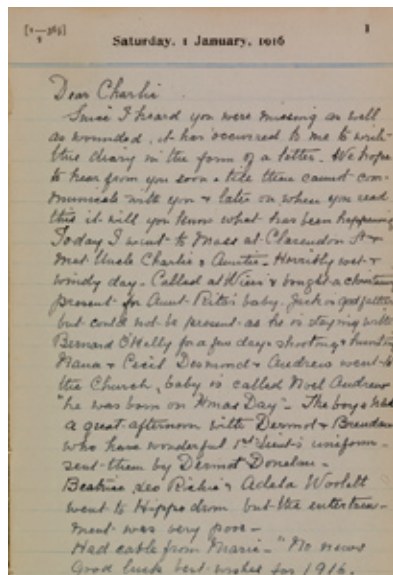 [1—365]
1
1
Saturday, 1 January, 1916
Dear Charlie
Since I heard you were missing as well
as wounded, it has occurred to me to write
this diary in the form of a letter. We hope
to hear from you soon & till then cannot com-
municate with you & later on when you read
this it will let you know what has been happening
Today I went to Mass at Clarendon St &
met Uncle Charlie & Auntie - Horribly wet &
windy day - Called at & bought a christening
present for Aunt Rita's baby. Jack is godfather
but could not be present as he is staying with
Bernard O'Reilly for a few days shooting & hunting
Mana & Cecil Desmond & Andrews went to
the Church, baby is called Noel Andrew
"he was born on Xmas Day" - The boys had
a great afternoon with Dermot & Brendan
who have wonderful uniform -
sent them by Dermot Donelan -
Beatrice Leo Richie & Adela Woolett
went to Hippodrom but the entertain-
ment was very poor -
Had cable from Marie - "No news
Good luck best wishes for 1916.